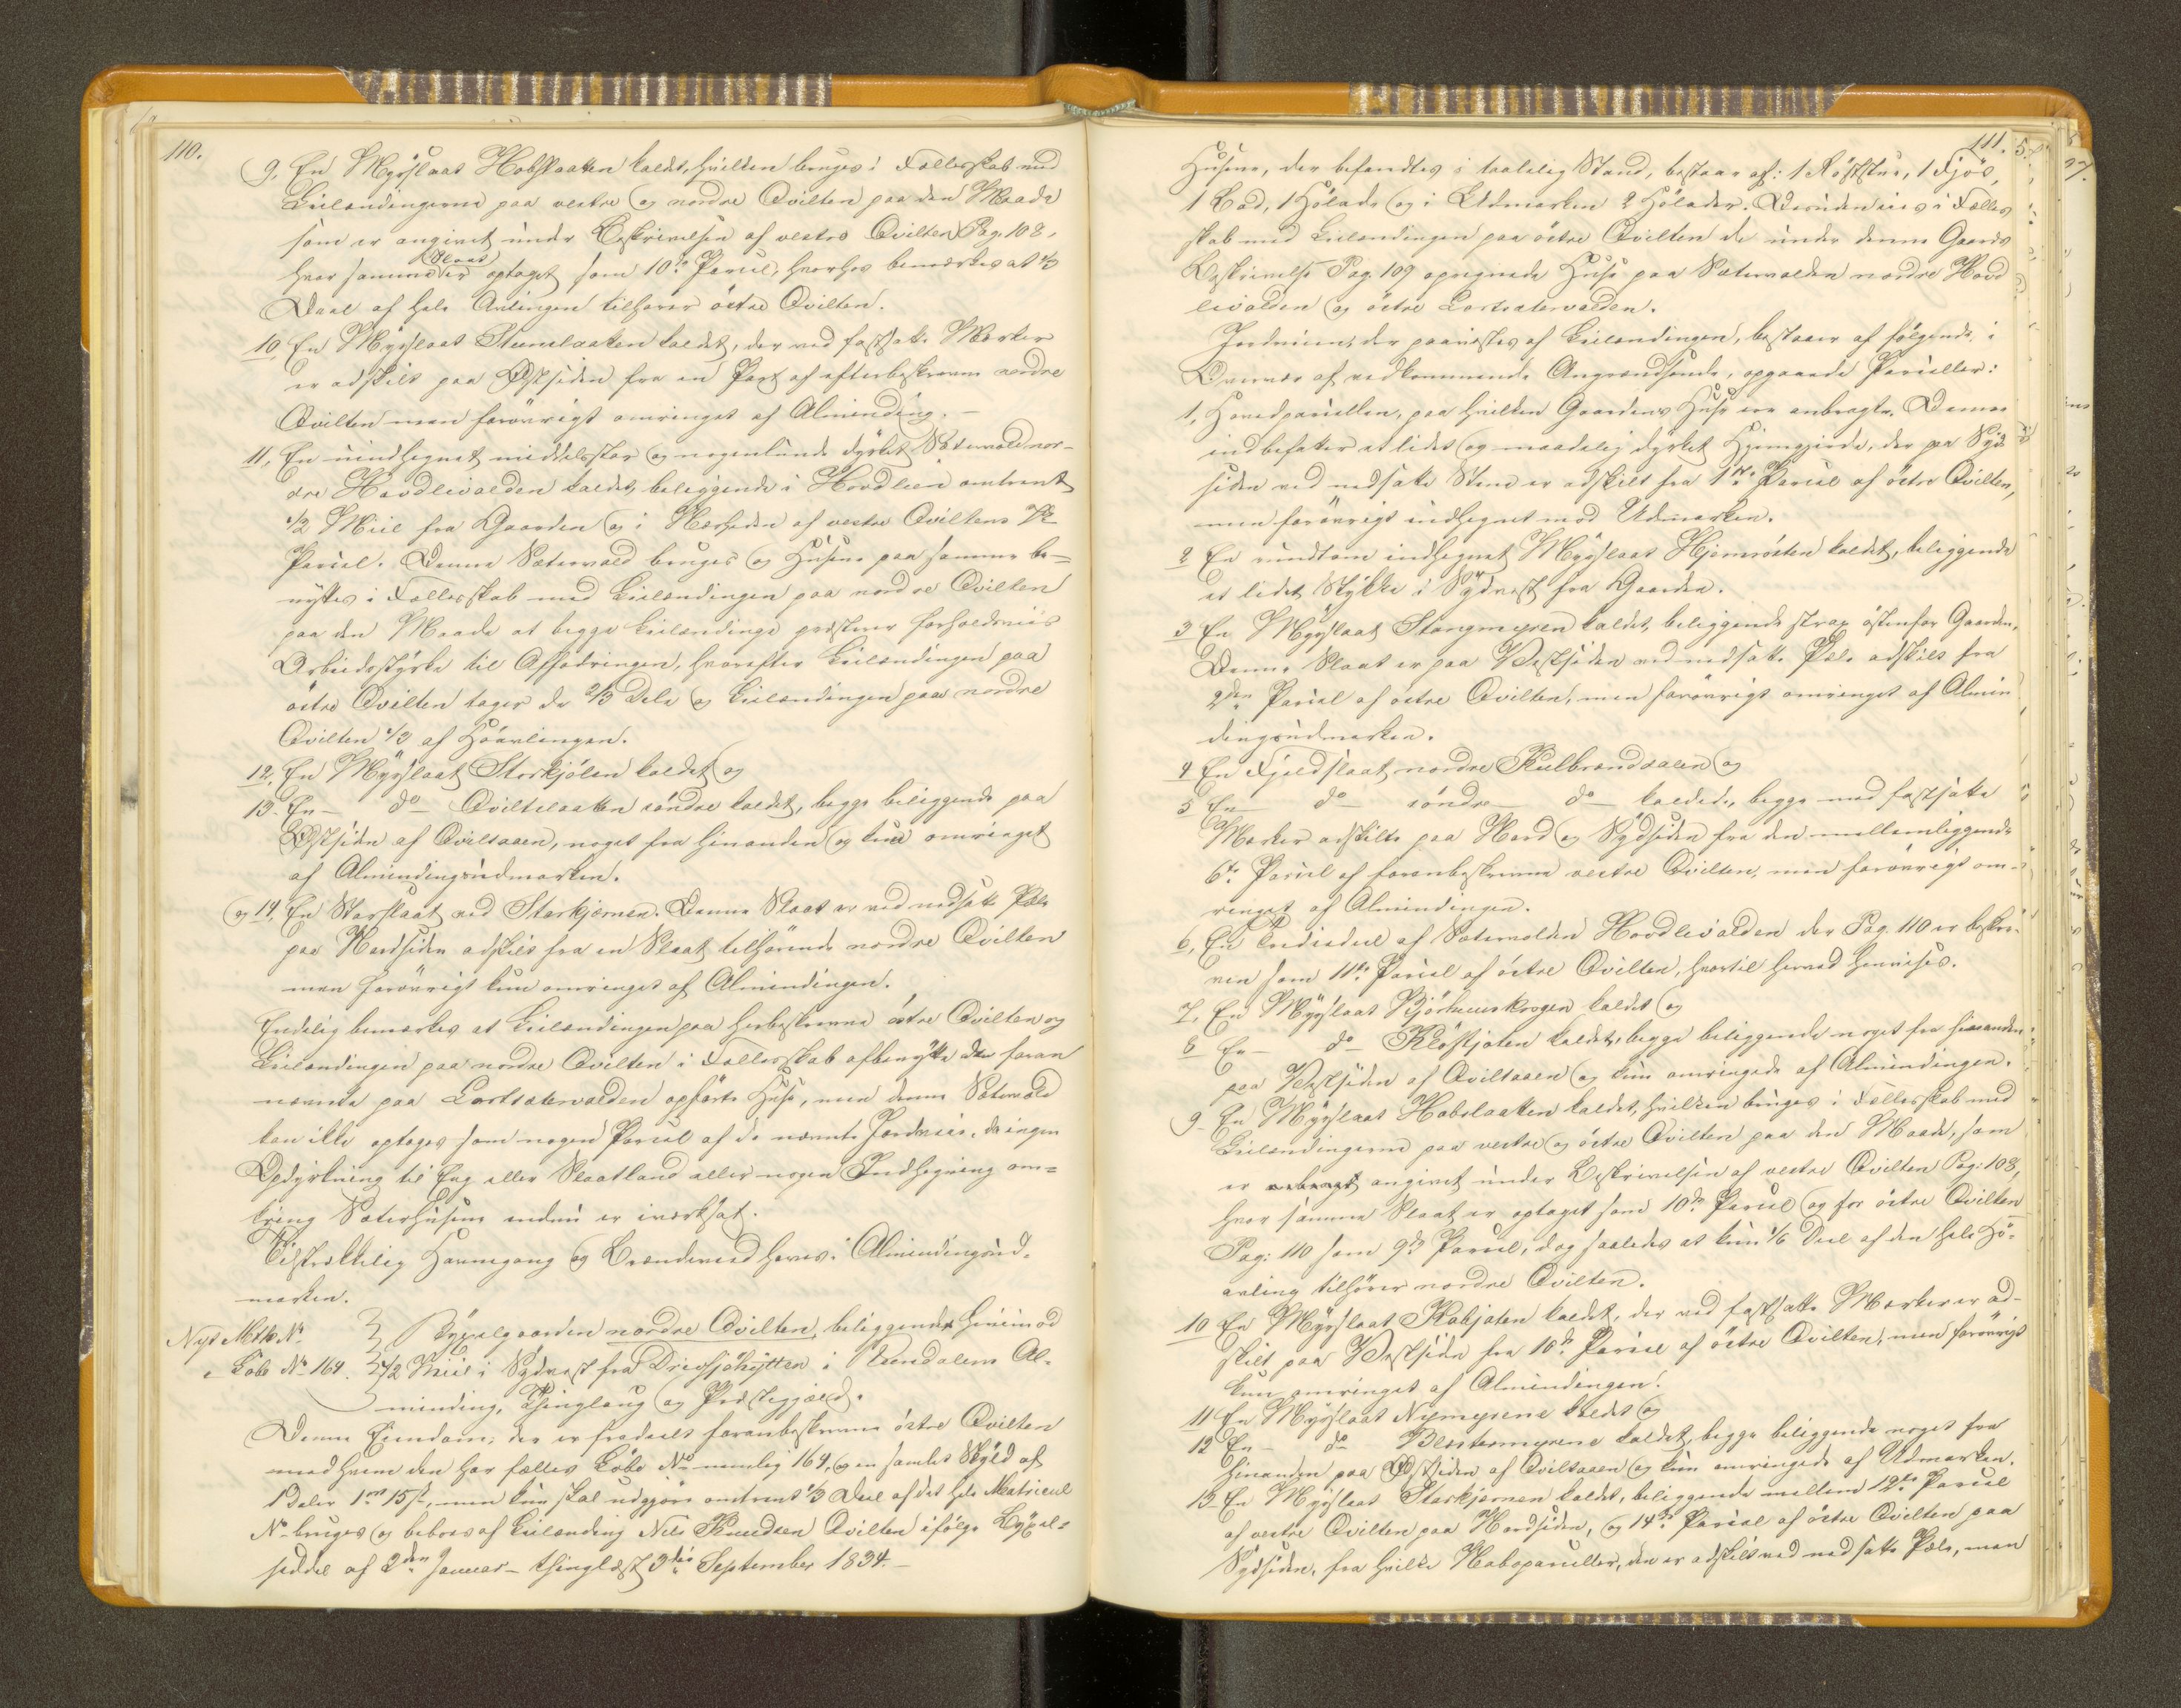 110.
9, En Myrslaat Hobslaatten kaldet, hvilken bruges i Fællesskab med
Leilændingerne paa vestre og nordre Qvilten paa den Maade
som er angivet under Beskrivelsen af vestre Qvilten Pag. 108,
hvor samme Slaat er optaget som 10de Parcel, hvorhos bemærkes at 1/3
Deel af hele Avlingen tilhører östre Qvilten.
10, En Myrslaat Steenslaatten kaldet, der ved fastsatte Mærker
er adskilt paa Østsiden fra en Part af efterbeskrevne nordre
Qvilten men forövrigt omringet af Alminding. –
11, En uindhegnet middelsstor og nogenlunde dyrket Sætervold nor-
dre Hovdlivolden kaldet, beliggende i Hovdlien omtrent
1/2 Miil fra Gaarden og i Nærheden af vestre Qviltens
Parcel. Denne Sætervold bruges og Husene paa samme be-
nyttes i Fællesskab med Leilændingen paa nordre Qvilten
paa den Maade at begge Leilændinge præsterer forholdsviis
Arbeidsstyrke til Affodringen, hvorefter Leilændingen paa
östre Qvilten tager de 2/3 Dele og Leilændingen paa nordre
Qvilten 1/3 af Höavlingen.
12, En Myrslaat Storkjölen kaldet og
13. En – do – Qviltslaatten söndre kaldet, begge beliggende paa
Østsiden af Qviltaaen, noget fra hinanden og kun omringet
af Almindingsudmarken.
og 14, En Starslaat ved Starkjærnen. Denne Slaat er ved nedsatte Pæle
paa Nordsiden adskilt fra en Slaat tilhörende nordre Qvilten
men forövrigt kun omringet af Almindingen.
Endelig bemærkes at Leilændingen paa herbeskrevne östre Qvilten og
Leilændingen paa nordre Qvilten i Fællesskab afbenytte de foran
nævnte paa Lortsætervolden opförte Huse, men denne Sætervold
kan ikke optages som nogen Parcel af de nævnte Jordveie, da ingen
Opdyrkning til Eng eller Slaatland eller nogen Indhegning om-
kring Sæterhusene endnu er iværksat.
Tilstrækkelig Havnegang og Brændeved haves i Almindingsud-
marken.
Nyt Mtk. No
Löbe No 164. } Bygselgaarden nordre Qvilten, beliggende henimod
1/2 Miil i Sydvest fra Drivsjöhytten i Tendalens Al-
minding, Thinglaug og Præstegjæld.
Denne Eiendom, der er fradeelt foranbeskrevne östre Qvilten
med hvem den har fælles Löbe No nemlig 164, og en samlet Skyld af
1 Daler 1 Ort 15 ß, men kun skal udgjøre omtrent 1/3 Deel af det hele Matricul
No – bruges og beboes af Leilænding Nils Knudsen Qvilten ifölge Bygsel-
seddel af 2den Januar – thinglæst 3die September 1834. –
111.
Husene, der befandtes i taalelig Stand, bestaar af: 1 Röststue, 1 Fjös,
1 Bod, 1 Hölade og i Udmarken 2 Hölader. Desuden eies i Fælles
skab med Leilændingen paa östre Qvilten de under denne Gaards
Beskrivelse Pag. 109 opregnede Huse paa Sætervolden nordre Hovd
livolden og östre Lortsætervolden.
Jordveien, der paavistes af Leilændingen, bestaaer af fölgende, i
Overvær af vedkommende Angrændsende, opgaaede Parceller:
1, Hovedparcellen, paa hvilken Gaardens Huse ere anbragte. Denne
indbefatter et lidet og maadelig dyrket Hjemgjerde, der paa Syd
siden ved nedsatte Stene er adskilt fra 1ste Parcel af östre Qvilten,
men forövrigt indhegnet mod Udmarken.
2 En rundtom indhegnet Myrslaat Hjemrösten kaldet, beliggende
et lidet Stykke i Sydvest fra Gaarden.
3 En Myrslaat Stangmyren kaldet, beliggende strax östenfor Gaarden,
Denne Slaat er paa Vestsiden ved nedsatte Pæle adskilt fra
2den Parcel af östre Qvilten, men forövrigt omringet af Almin
dingsudmarken.
4 En Fjeldslaat nordre Kulbrændsaen og
5 En – do – söndre – do – kaldede, begge med fastsatte
Mærker adskilte paa Nord og Sydsiden fra den mellemliggende
6te Parcel af foranbeskrevne vestre Qvilten, men forövrigt om-
ringet af Almindingen.
6, En Trediedeel af Sætervolden Hovdlivolden der Pag. 110 er beskre-
ven som 11te Parcel af östre Qvilten, hvortil herved henvises.
7, En Myrslaat Björhuuskrogen kaldet og
8 En – do – Klöftkjölen kaldet, begge beliggende noget fra hinanden
paa Vestsiden af Qviltaaen og kun omringede af Almindingen.
9 En Myrslaat Hobslaatten kaldet, hvilken bruges i Fællesskab med
Leilændingerne paa vestre og östre Qvilten paa den Maade, som
er angivet under Beskrivelsen af vestre Qvilten Pag: 108,
hvor samme Slaat er optaget som 10de Parcel og for östre Qvilten
Pag: 110 som 9de Parcel, dog saaledes at kun 1/6 Deel af den hele Hö-
avling tilhörer nordre Qvilten.
10 En Myrslaat Kobjolen kaldet, der ved fastsatte Mærker er ad-
skilt paa Vestsiden fra 10de Parcel af östre Qvilten, men forövrigt
kun omringet af Almindingen.
11 En Myrslaat Nymyrene kaldet og
12 En – do Blæstermyrene kaldet, begge beliggende noget fra
hinanden paa Østsiden af Qviltaaen og kun omringede af Udmarken.
13 En Myrslaat Starkjernen kaldet, beliggende mellem 12te Parcel
af vestre Qvilten paa Nordsiden, og 14de Parcel af östre Qvilten paa
Sydsiden, fra hvilke Naboparceller, den er adskilt ved nedsatte Pæle, men